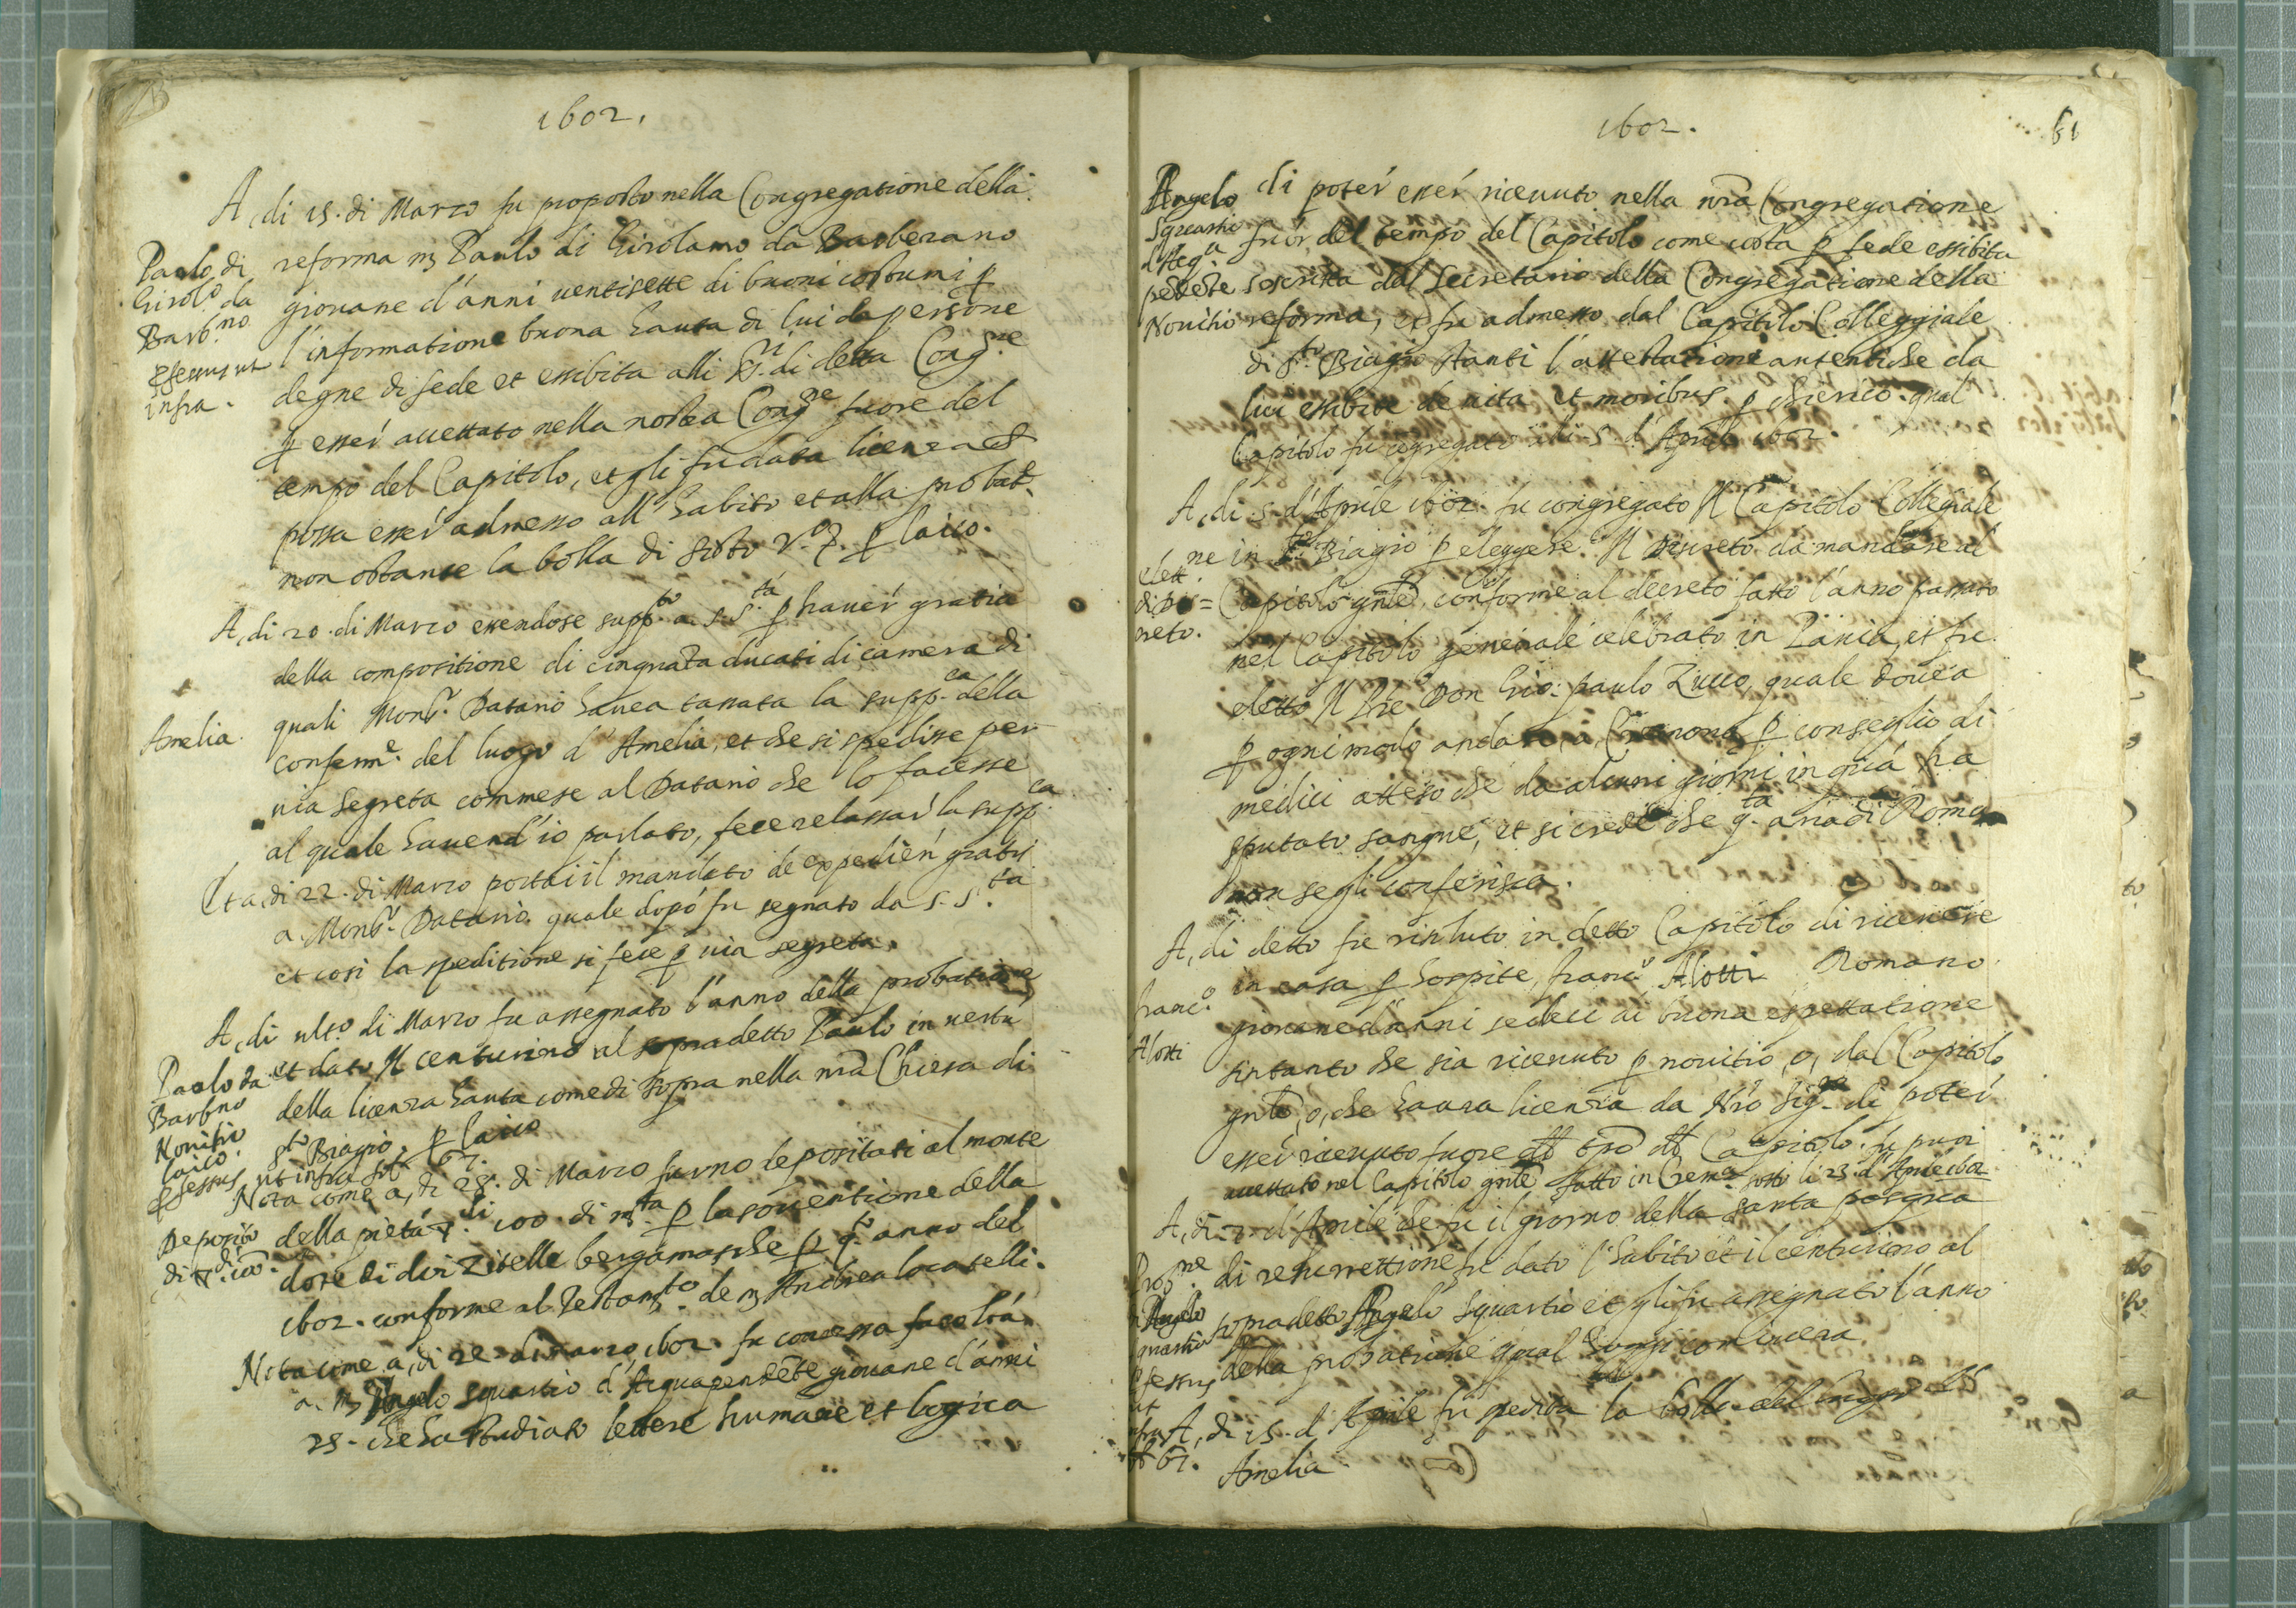 1602.
A, di 15. di Marzo fu proposto nella Congregatione della
reforma m Paulo di Girolamo da Barberano
giouane d'anni uentisette di buoni costumi p
l'informatione buona hauta di lui da persone
degne di fede et essibita alli SS.ri di detta Cong.ne
p esser accettato nella nostra Cong.ne fuore del
tempo del Capitolo, et gli fu data licenza
possa esser admesso all'habito et alla probat.e
non ostante la bolla di Sisto V.o p laico.
Paolo di
Girol.o da
Barb.no
professus ut
infra.
A, di 20. di Marzo essendose supp.to a S. S.tà p hauer gratia
della compositione di cinquata ducati di camera di
quali Mons.r Datario hauea tassata la supp.ca della
conferm.e del luogo d'Amelia, et che si spedisse per
uia segreta commese al Datario che lo facesse
al quale hauend'io parlato, fece relassar la supp.ca
Et a, di 22. di Marzo portai il mandato de expedien gratis
a Mons.r Datario quale dopo fu segnato da S. S.ta
et così la speditione si fece p uia segreta.
Amelia.
A, di ult.o di Marzo fu assegnato l'anno della probatione
et dato Il centurino al sopradetto Paulo in uertu
della licenza hauta come di sopra nella nra Chiesa di
S.to Biagio. p laico
ut infra fol. 67.
Paolo da
Barb.no
Nouitio
laico.
professus
Nota come a, di 28. di Marzo furno depositati al monte
della pietà di 100. di m.ta p la souentione della
dote di doi Zitelle bergamasche p q.to anno del
1602. conforme al Testam.to de m Andrea locatelli.
Deposito
di 100.
Nota come a, di 22. di marzo 1602. fu concessa facoltà
a. m Angelo Squartio d'Acquapendete giouane d'anni
25. che ha studiato lettere humane et logica
1602.
61
Angelo
Squartio
d'Acq.a
pedete
Nouitio
di poter esser riceuuto nella nra Congregatione
fuor del tempo del Capitolo come costa p fede essibita
soscritta dal Secretario della Congregatione della
reforma, et fu admesso dal Capitolo Colleggiale
di S.to Biagio stanti l'attestatione autentiche da
lui essibite de uita et moribus. p chierico. qual
Capitolo fu cogregato adi 5. d'Aprile 1602.
A, di .5. d'Aprile 1602. fu congregato Il Capitolo Collegiale
in S.to Biagio p eleggere Il Discreto da mandare al
Capitolo gnle, conforme al decreto fatto l'anno passato
nel Capitolo generale celebrato in Pauia, et fu
eletto Il Pre Don Gio: paulo Zucco, quale douea
p ogni modo andare, a, Cremona p conseglio di
medici atteso che da alcuni giorni in quà ha
sputato sangue, et si crede che q.ta aria di Roma
non se gli conferisca.
elett.ne
di Dis=
creto.
A, di detto fu risoluto in detto Capitolo di riceuere
in casa p hospite, franc.o Aliotti Romano
giouane d'anni sedeci di buona espettatione
sintanto che sia riceuuto p nouitio, o, dal Capitolo
gnle, o, che haura licenza da Nro Sig.re di poter
esser riceuuto fuore del tpo del Capitolo. fu puoi
accettato nel Capitolo gnle fatto in Crem.a sotto li 23. d'Aprile 1602.
franc.o
Aliotti
A, di 7. d'Aprile che fu il giorno della santa pasqua
di resurrettione fu dato l'habito et il centurino al
sopradetto Angelo Squartio et gli fu assegnato l'anno
della probatione qual hoggi comincera.
Prob.ne
Angelo
professus
ut
infra
67.
A, di 15. d'Aprile fu spedita la bolla del luogo d'
Amelia